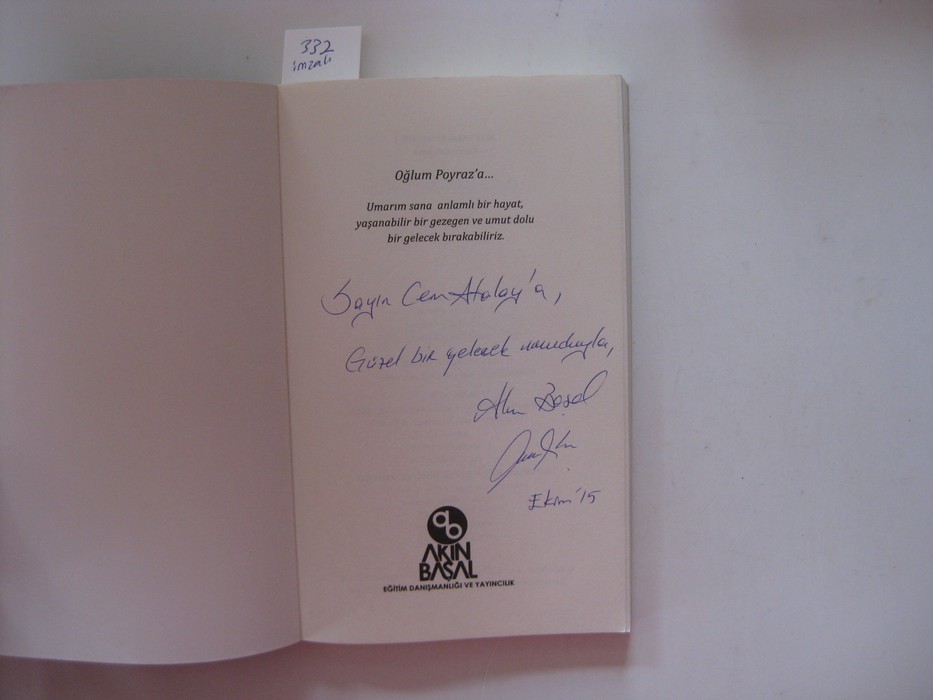 332
imzalı
Oğlum Poyraz'a...
Umarım sana anlamlı bir hayat,
yaşanabilir bir gezegen ve umut dolu
bir gelecek bırakabiliriz.
Sayın Cem Atalay'a,
Güzel bir gelecek umuduyla,
Akın Başal
Ekim'15
ab
AKIN
BAŞAL
EĞİTİM DANIŞMANLIĞI VE YAYINCILIK